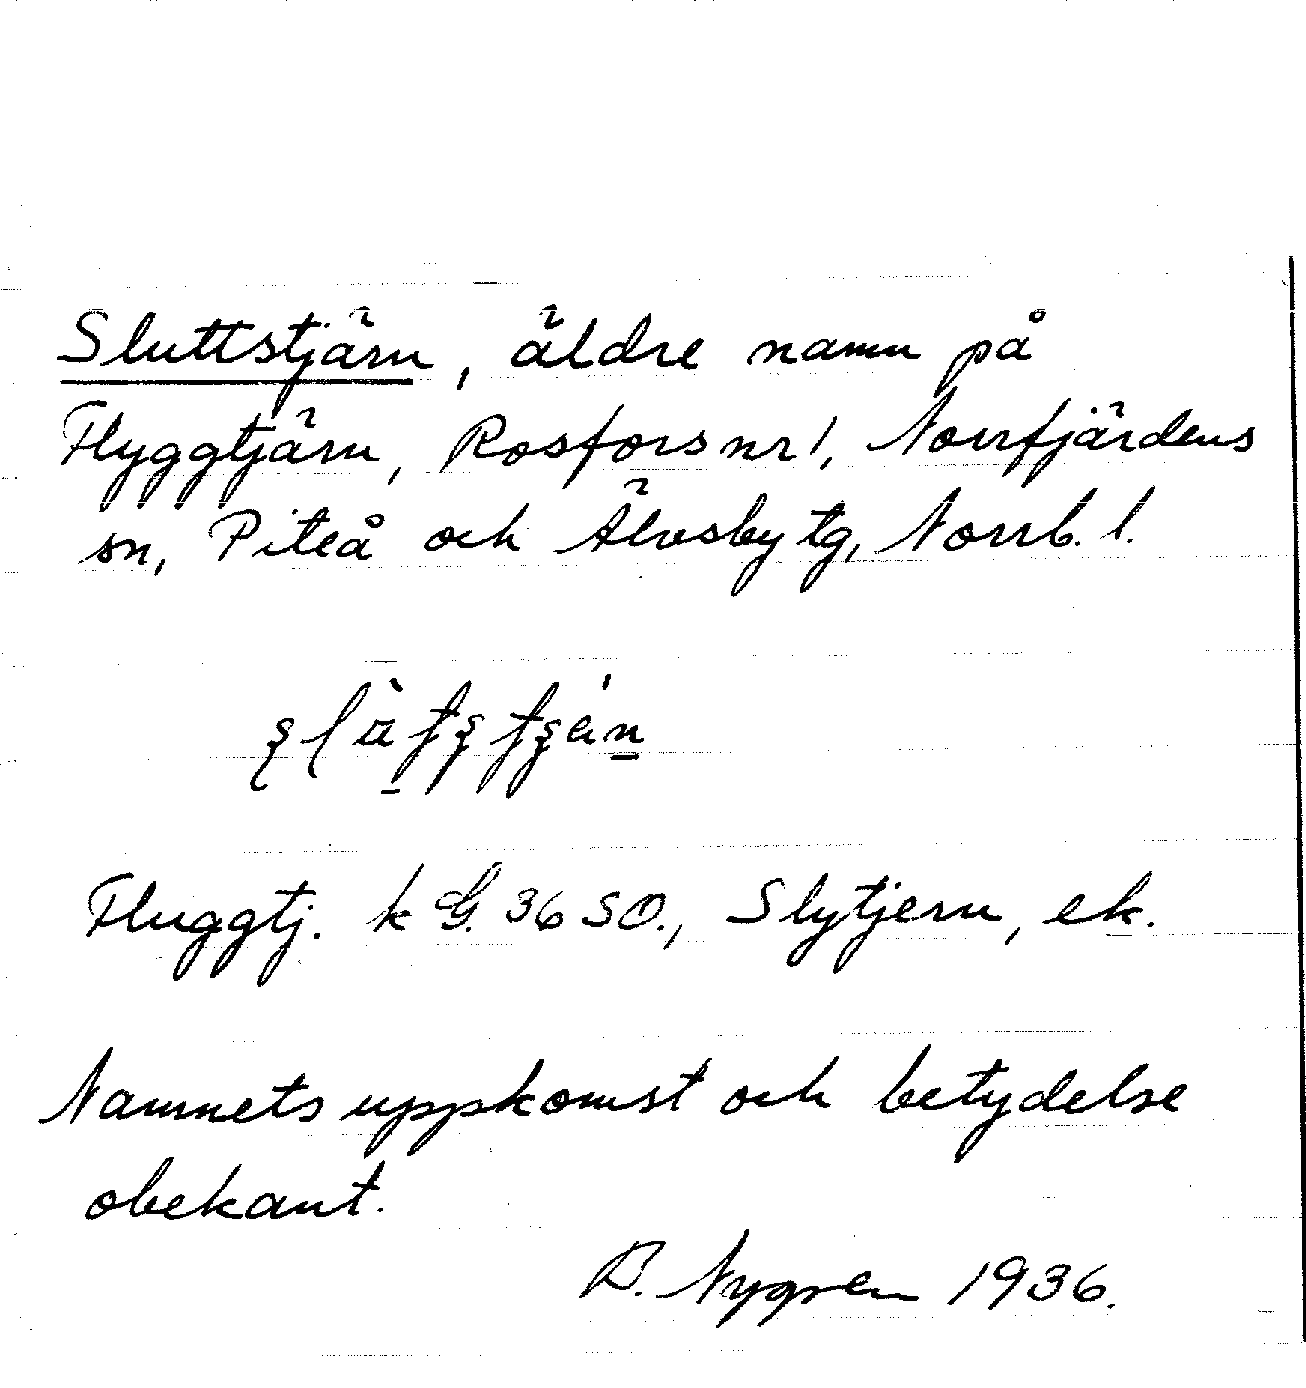 Sluttstjärn, äldre namn på
Flyggtjärn, Rosfors nr 1, Norrfjärdens
sn, Piteå och Älvsby tg, Norrb. l.
Fluggtj. k G. 36 SO., Slytjern, ek.
Namnets uppkomst och betydelse
obekant.
B. Nygren 1936.